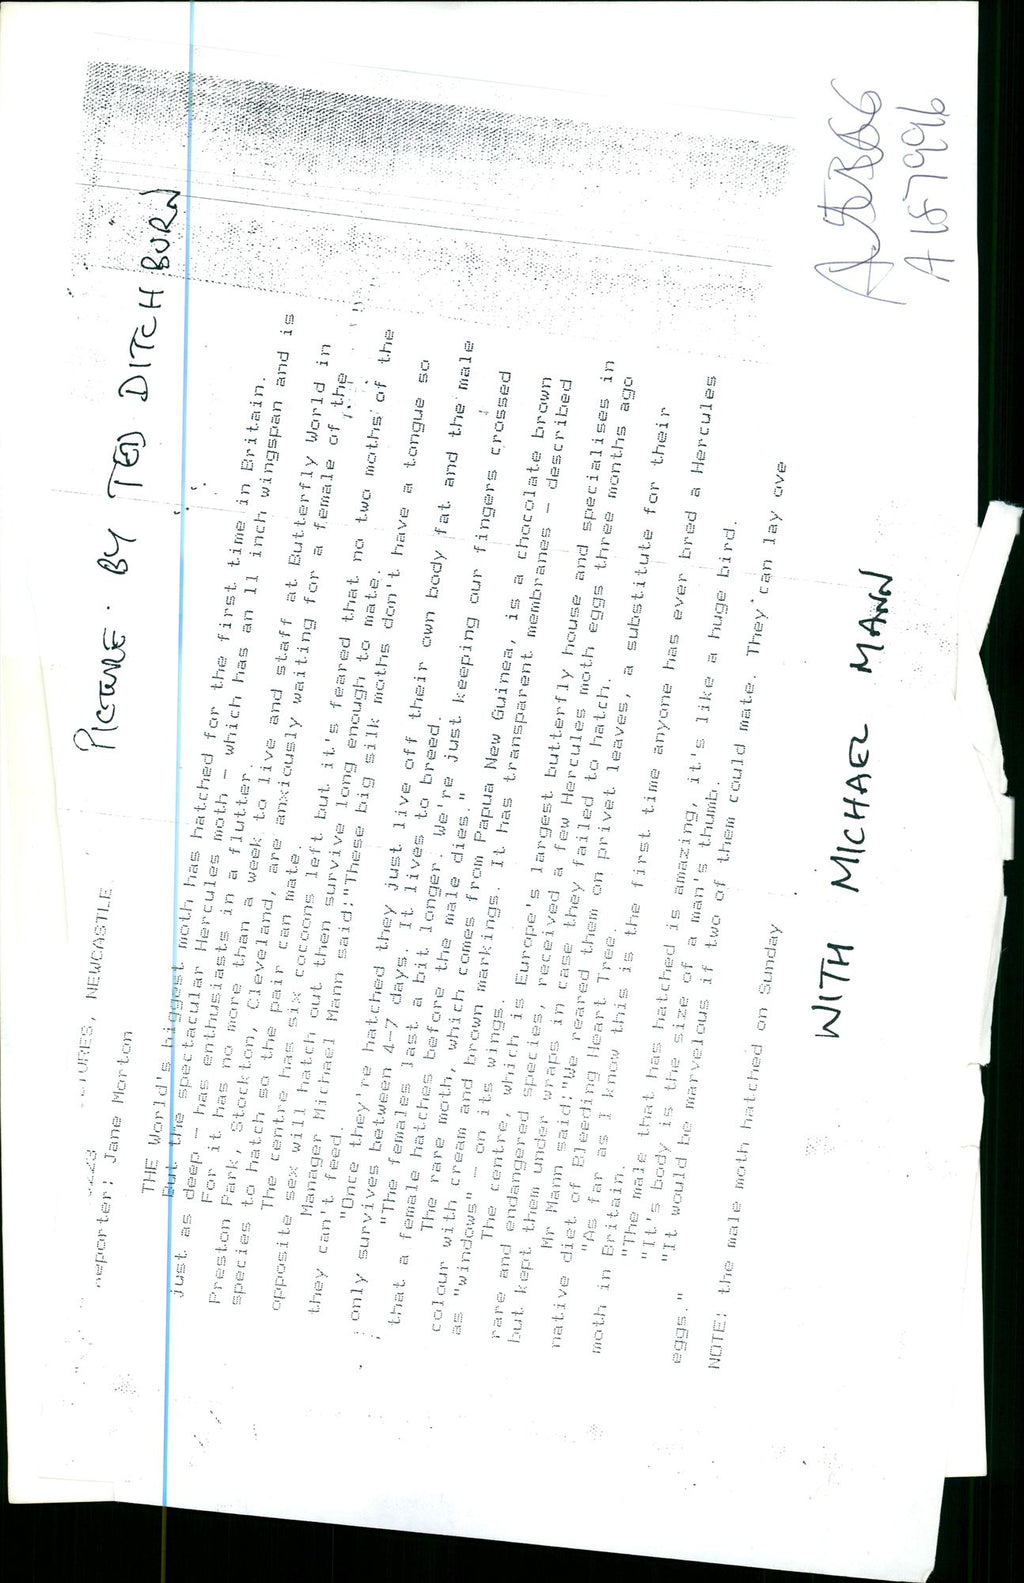 PICTURE BY TED DITCHBURN
NEWCASTLE
reporter: Jane Morton
THE World's biggest moth has hatched for the first time in Britain.
But the spectacular Hercules moth - which has an 11 inch wingspan and is
just as deep - has enthusiasts in a flutter.
For it has no more than a week to live and staff at Butterfly World in
Preston Park, Stockton, Cleveland, are anxiously waiting for a female of the
species to hatch so the pair can mate.
The centre has six cocoons left but it's feared that no two moths of the
opposite sex will hatch out then survive long enough to mate.
Manager Michael Mann said:"These big silk moths don't have a tongue so
they can't feed.
"Once they're hatched they just live off their own body fat and the male
only survives between 4-7 days. It lives to breed.
"The females last a bit longer. We're just keeping our fingers crossed
that a female hatches before the male dies."
The rare moth, which comes from Papua New Guinea, is a chocolate brown
colour with cream and brown markings. It has transparent membranes - described
as "windows" - on its wings.
The centre, which is Europe's largest butterfly house and specialises in
rare and endangered species, received a few Hercules moth eggs three months ago
but kept them under wraps in case they failed to hatch.
Mr Mann said:"We reared them on privet leaves, a substitute for their
native diet of Bleeding Heart Tree.
"As far as I know this is the first time anyone has ever bred a Hercules
moth in Britain.
"The male that has hatched is amazing, it's like a huge bird.
"It's body is the size of a man's thumb.
"It would be marvelous if two of them could mate. They can lay ove
eggs."
NOTE: the male moth hatched on Sunday
WITH MICHAEL MANN
A187996